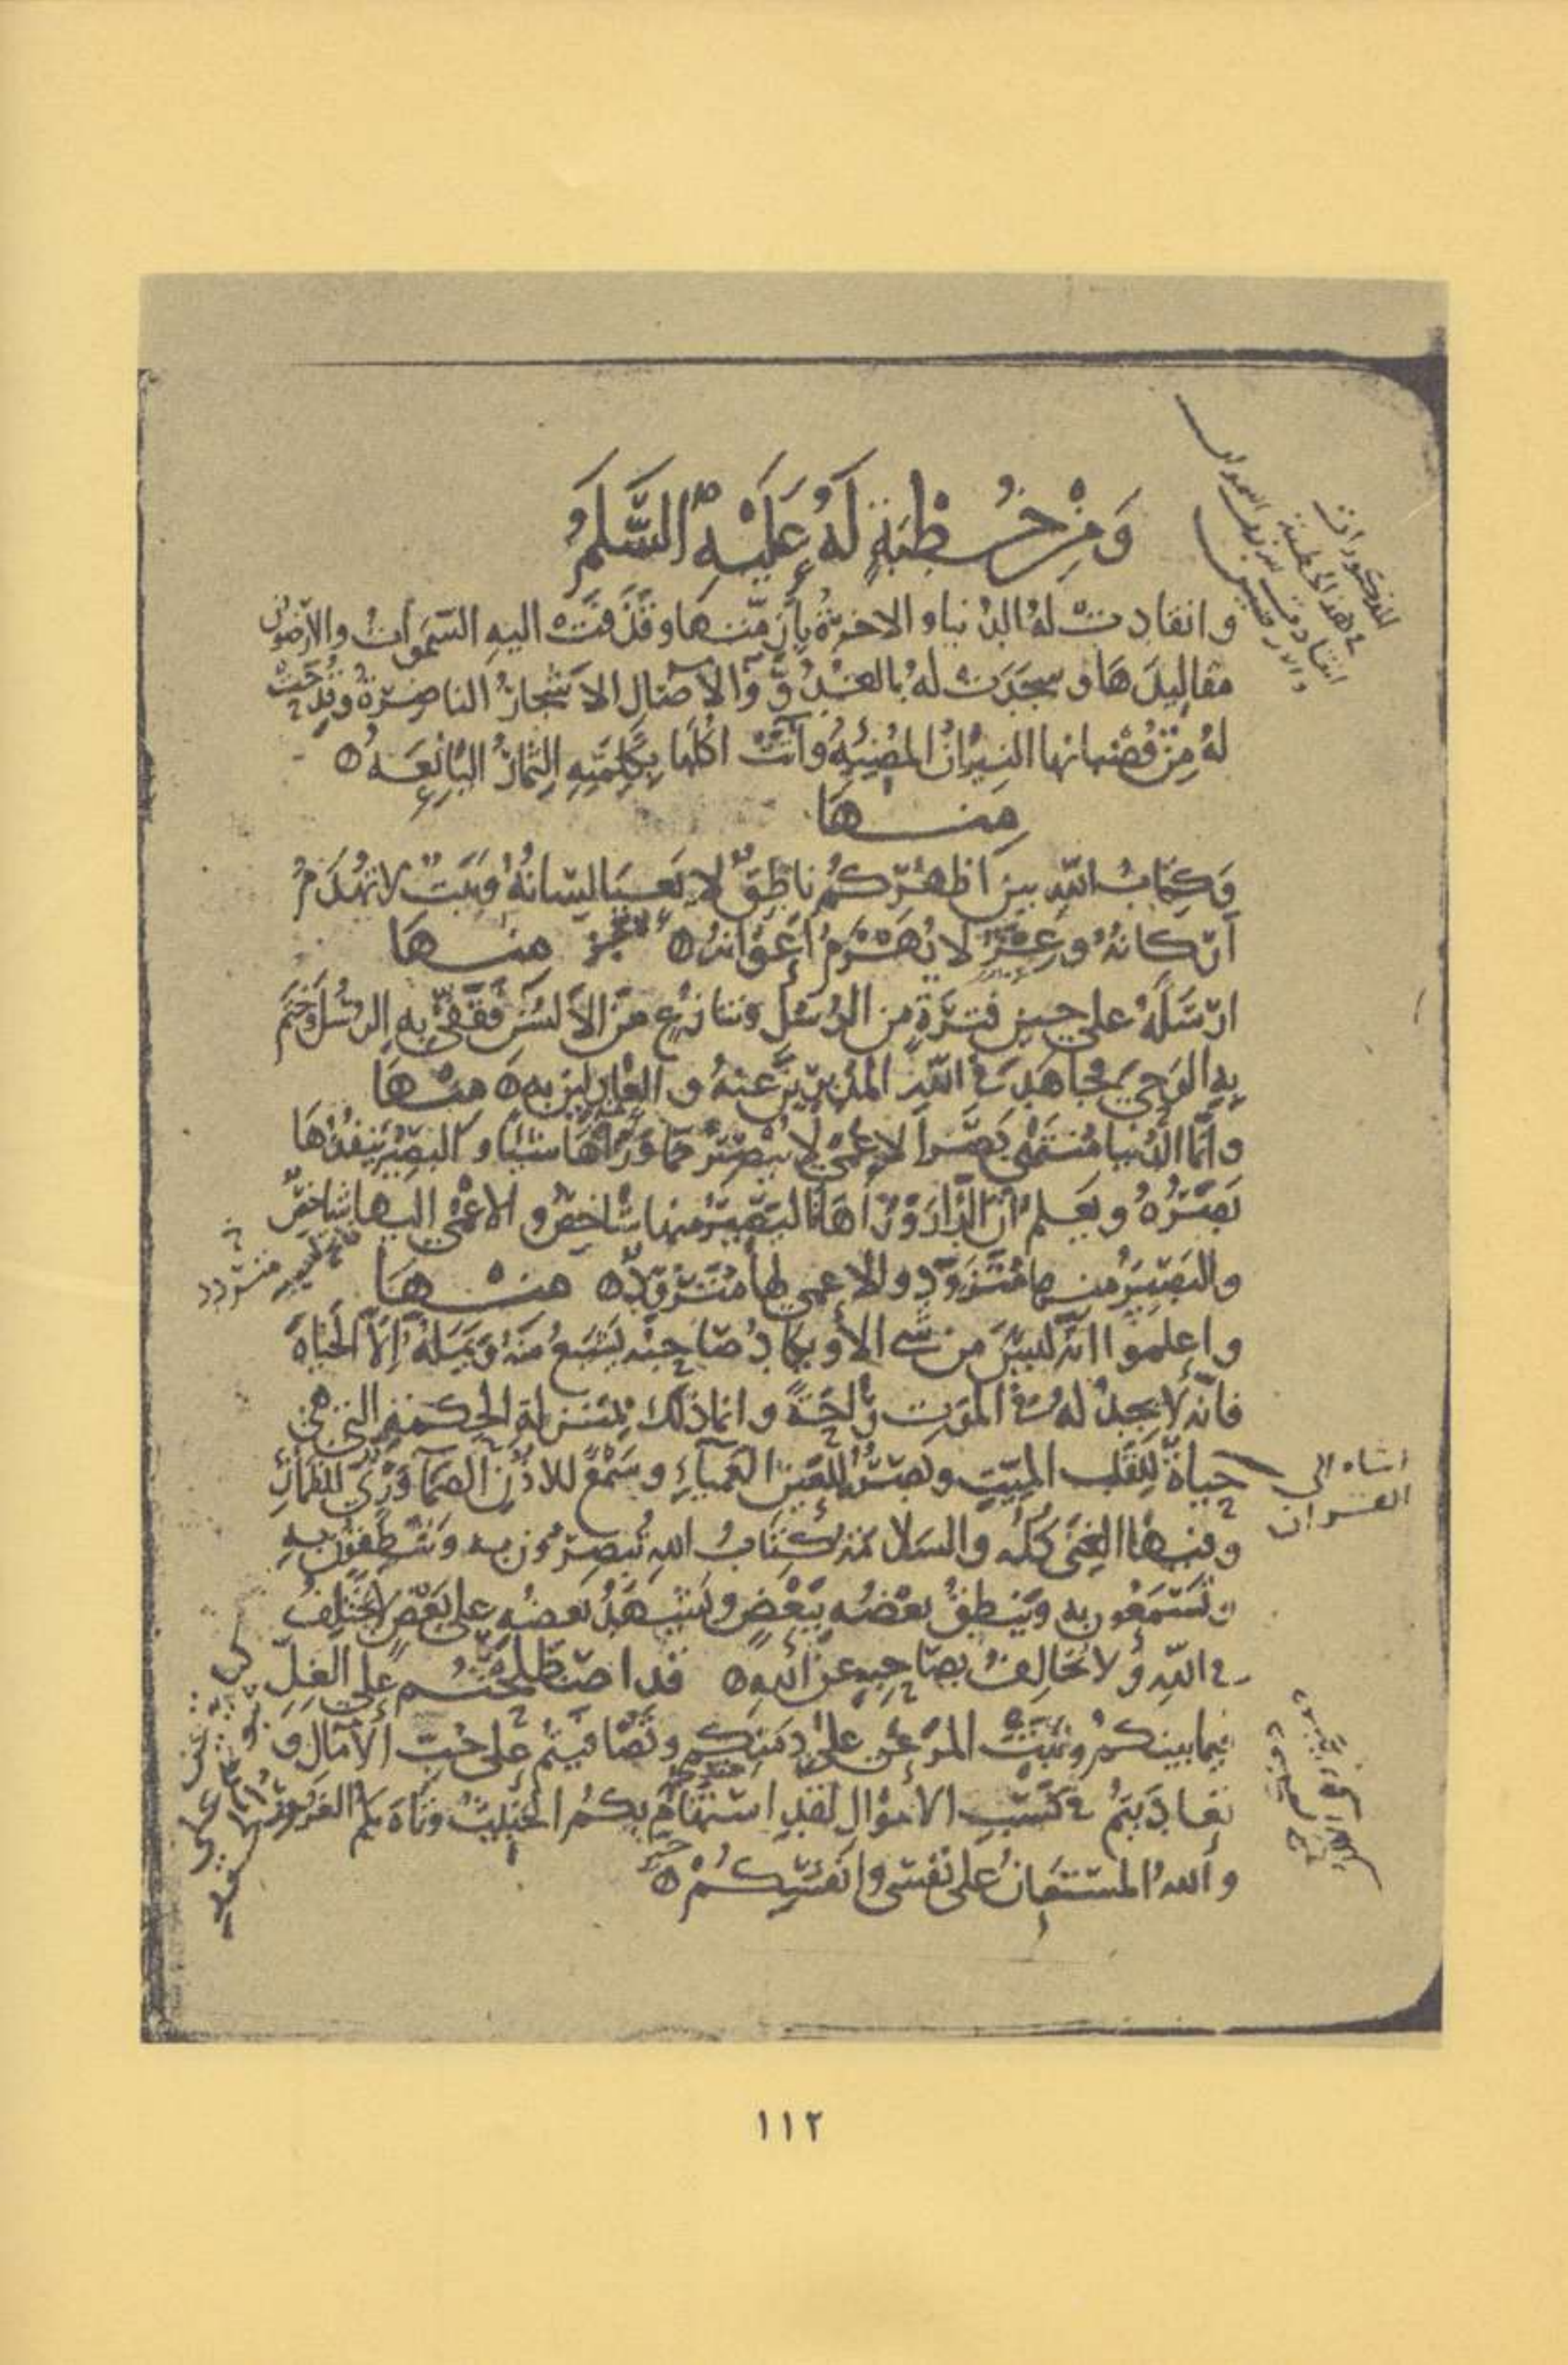 وَمِنْ خُطْبَةٍ لَهُ عَلَيْهِ السَّلَمُ
وانقادت لهُ الدنيا والاخرةُ بِأَزِمَّتِها وقَذَفَتْ اليهِ السّمَواتُ والارَضونَ
مقاليدَهَا وسجَدَت لهُ بالغُدُوِّ وَالآصَالِ الاشْجارُ الناضِرَةُ وقَدَحَتْ
لهُ مِنْ قُضْبانها النيرانُ المُضِيئَهُ وآتَتْ اكُلَها بِكَلِمَتِهِ الثمارُ اليَانِعَهُ
مِنها
وَكِتابُ اللّهِ بين اظهُرِكُم ناطِقٌ لا يَعيَا لِسَانُهُ وبَيتٌ لا تُهدَمُ
أرْكانهُ وعِزٌّ لا يُهْزَمُ أعْوَانهُ منها
ارْسَلَهُ على حين فترَةٍ من الرُسُلِ وتنازُعٍ مِنَ الألسُنِ فَقَفّى بِهِ الرسُلَ وَخَتَمَ
بِهِ الوَحيَ فجاهَدَ في اللّهِ المُدْبِرِينَ عنهُ والعَادِلينَ بِهِ منها
وانّما الدُنيا مُنتَهى بَصَرِ الاعْمى لا يُبْصِرُ مما وَرَاءَهَا شيئًا والبَصِيْرُ يَنفُذُهَا
بَصَرُهُ ويَعلَمُ أنّ الدّارَ وَرَاءَهَا فالبَصِيْرُ منها شاخِصٌ والاعْمى اليها شاخِصٌ
والبَصِيْرُ منها مُتَزَوِّدٌ والاعمى لها مُتَزَوِّدٌ منها
واعلموا انّهُ ليسَ من شيءٍ الاّ ويكادُ صَاحِبُه يَشبَعُ منهُ ويَمَلُّهُ إلاّ الحَيَاةَ
فانّه لا يجِدُ لهُ في المَوْتِ رَاحَةً وانما ذلك بمَنزلةِ الحِكمَةِ التي هي
حياةٌ لِلقَلبِ الميّتِ وبَصَرٌ لِلعَينِ العَمياءِ وسَمْعٌ للاذُنِ الصَمّآءِ وَرِيٌّ لِلظمآنِ
وفيها الغِنَى كلّه والسَلامَةُ كِتَابُ اللهِ تُبصِرُونَ به وتنْطِقُونَ بهِ
وتَسْتَمِعُون به ويَنطِقُ بعْضُه بِبَعْضٍ ويَشْهَدُ بَعضُهُ على بَعْضٍ لا يختَلِفُ
في اللّهِ ولا يُخَالِفُ بِصَاحِبِهِ عنِ اللهِ قد اصطلحتُم على الغِلّ
فيما بينكم ونَبَتَ المَرْعى على دِمَنِكم وتَصَافَيتُم على حُبِّ الآمالِ و
تعادَيتُم في كَسْبِ الأموالِ لقدِ اسْتَهَامَ بِكمُ الخَبيثُ وتاهَ بكم الغُرُورُ
واللهُ المُسْتَعانُ على نَفْسى وانْفُسِكُمْ
المذكورات
في هذه الخطبة
متردد
اشاره الى
القران
١١٢